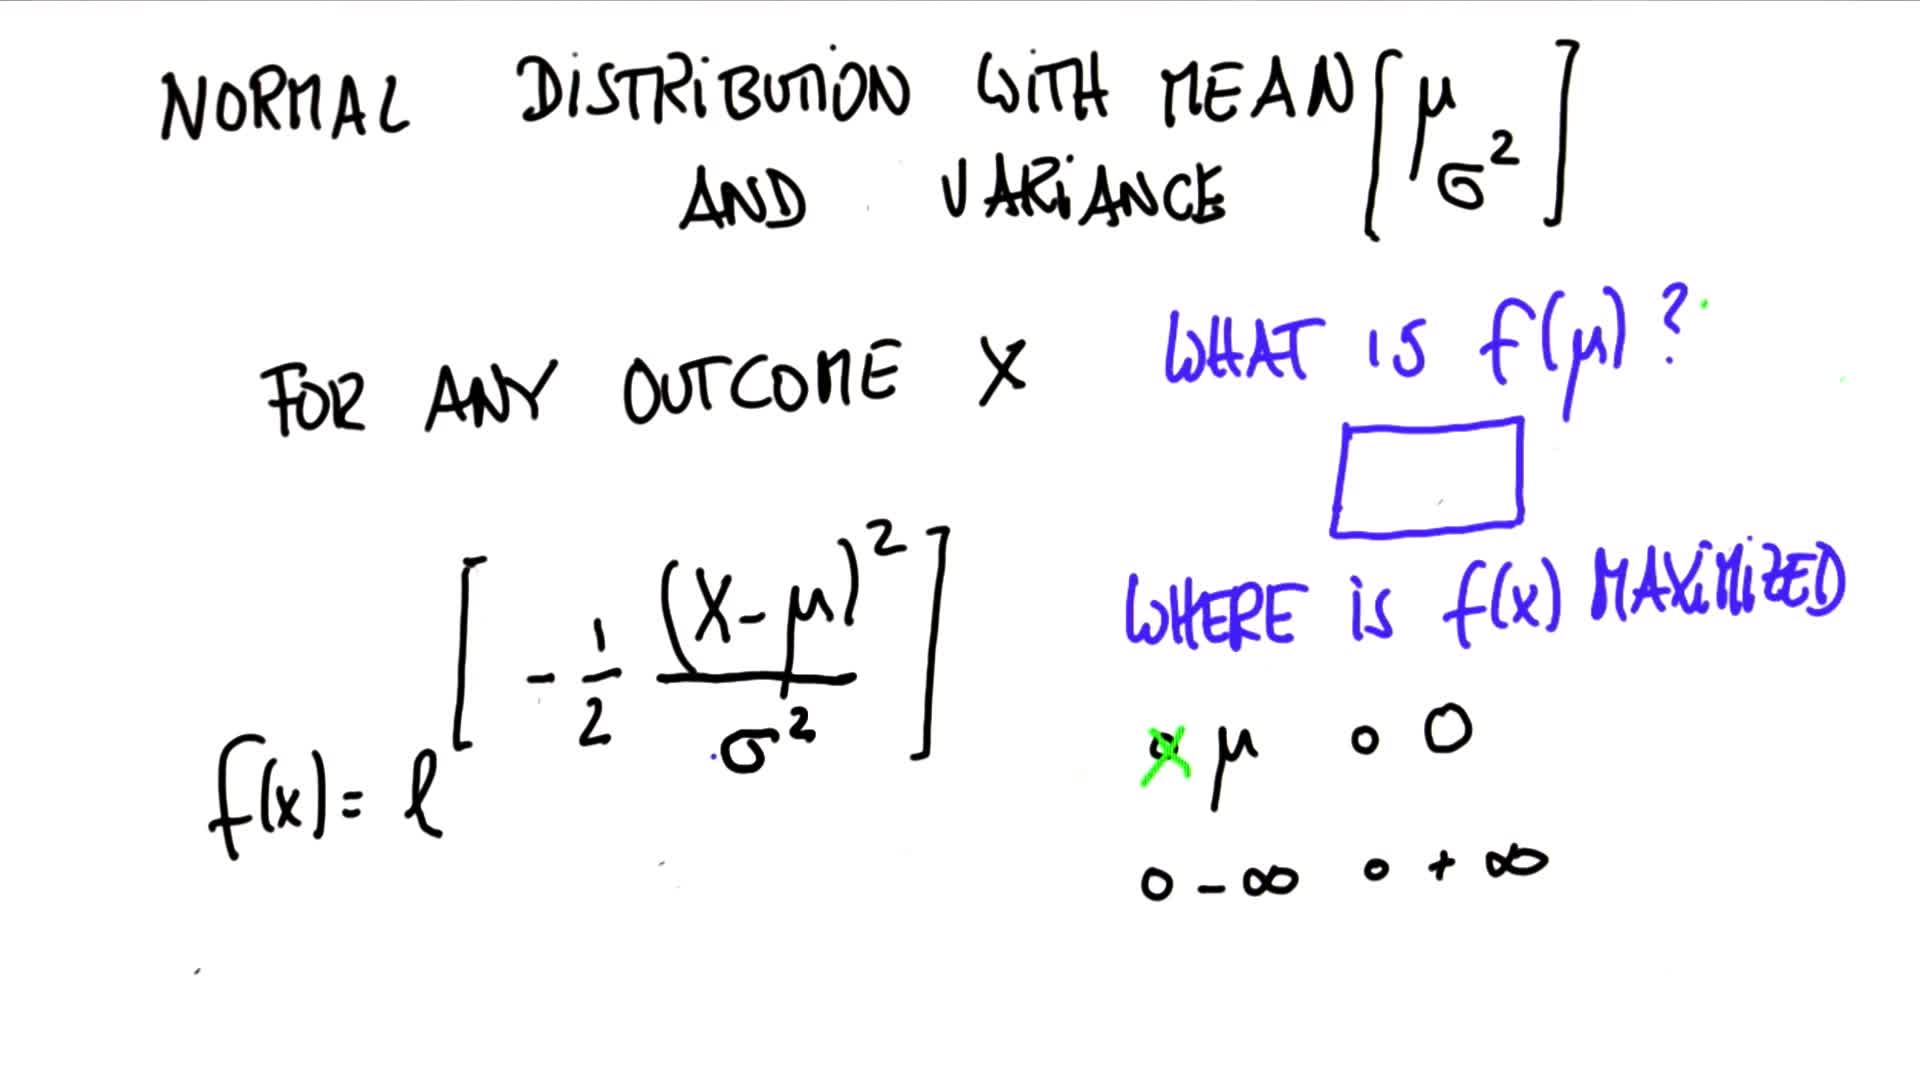 NORMAL DISTRIBUTION WITH MEAN [μ
AND VARIANCE σ²]
FOR ANY OUTCOME X
f(x) = e^[-1/2 (X-μ)²/σ²]
WHAT IS f(μ)?
WHERE IS f(x) MAXIMIZED
x μ o 0
o -∞ o +∞